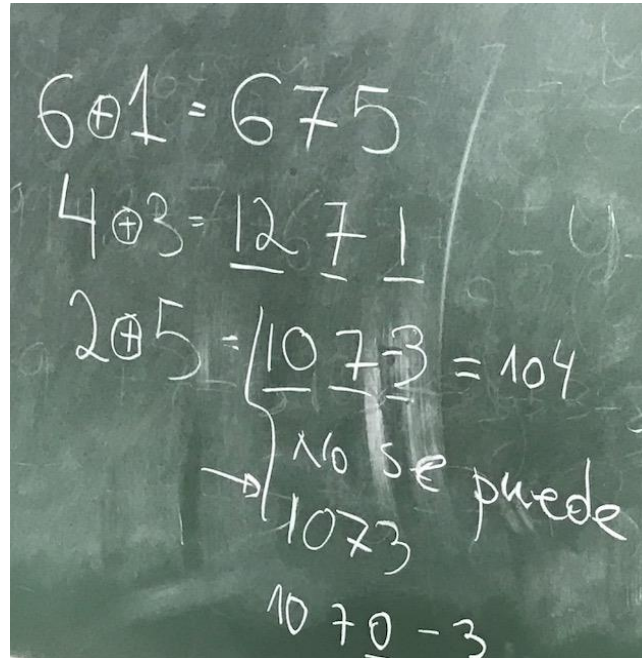 6⊕1 = 675
4⊕3 = 12 7 1
2⊕5 = 10 7 -3 = 104
No se puede
→ 1073
10 7 0 - 3